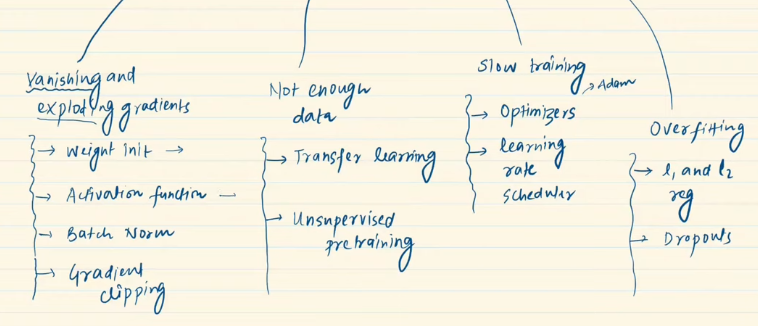 Vanishing and
exploding gradients
→ Weight init →
→ Activation function —
→ Batch Norm
→ Gradient
clipping
Not enough
data
→ Transfer learning
→ Unsupervised
pretraining
Slow training
→ Adam
→ Optimizers
→ learning
rate
Scheduler
Overfitting
→ l₁ and l₂
reg
→ Dropouts